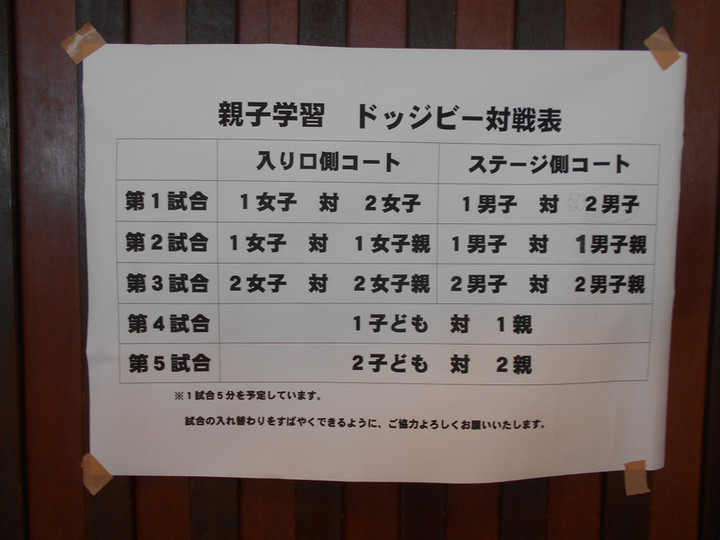 親子学習　ドッジビー対戦表
入り口側コート　ステージ側コート
第1試合　1女子　対　2女子　1男子　対　2男子
第2試合　1女子　対　1女子親　1男子　対　1男子親
第3試合　2女子　対　2女子親　2男子　対　2男子親
第4試合　1子ども　対　1親
第5試合　2子ども　対　2親
※1試合5分を予定しています。
試合の入れ替わりをすばやくできるように、ご協力よろしくお願いいたします。